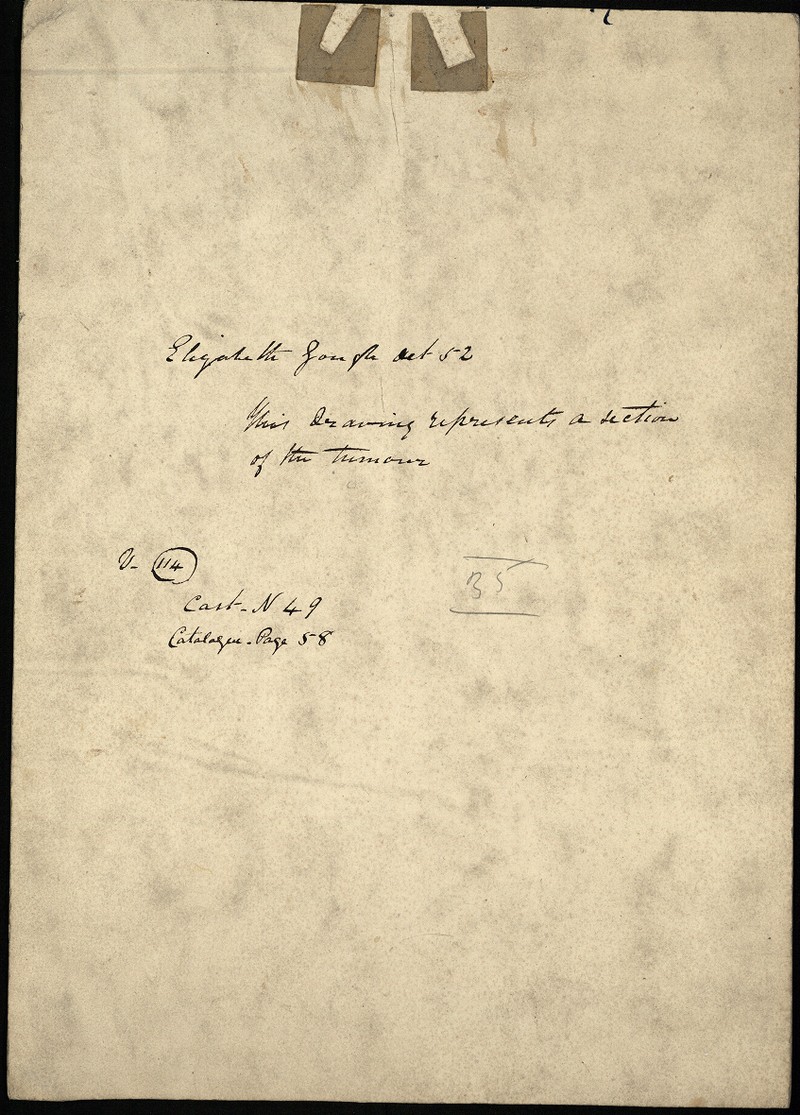 Elizabeth Gough aet 52
This Drawing represents a section
of the tumour
V- 114
Cast - N 49
Catalogue - Page 58
B5